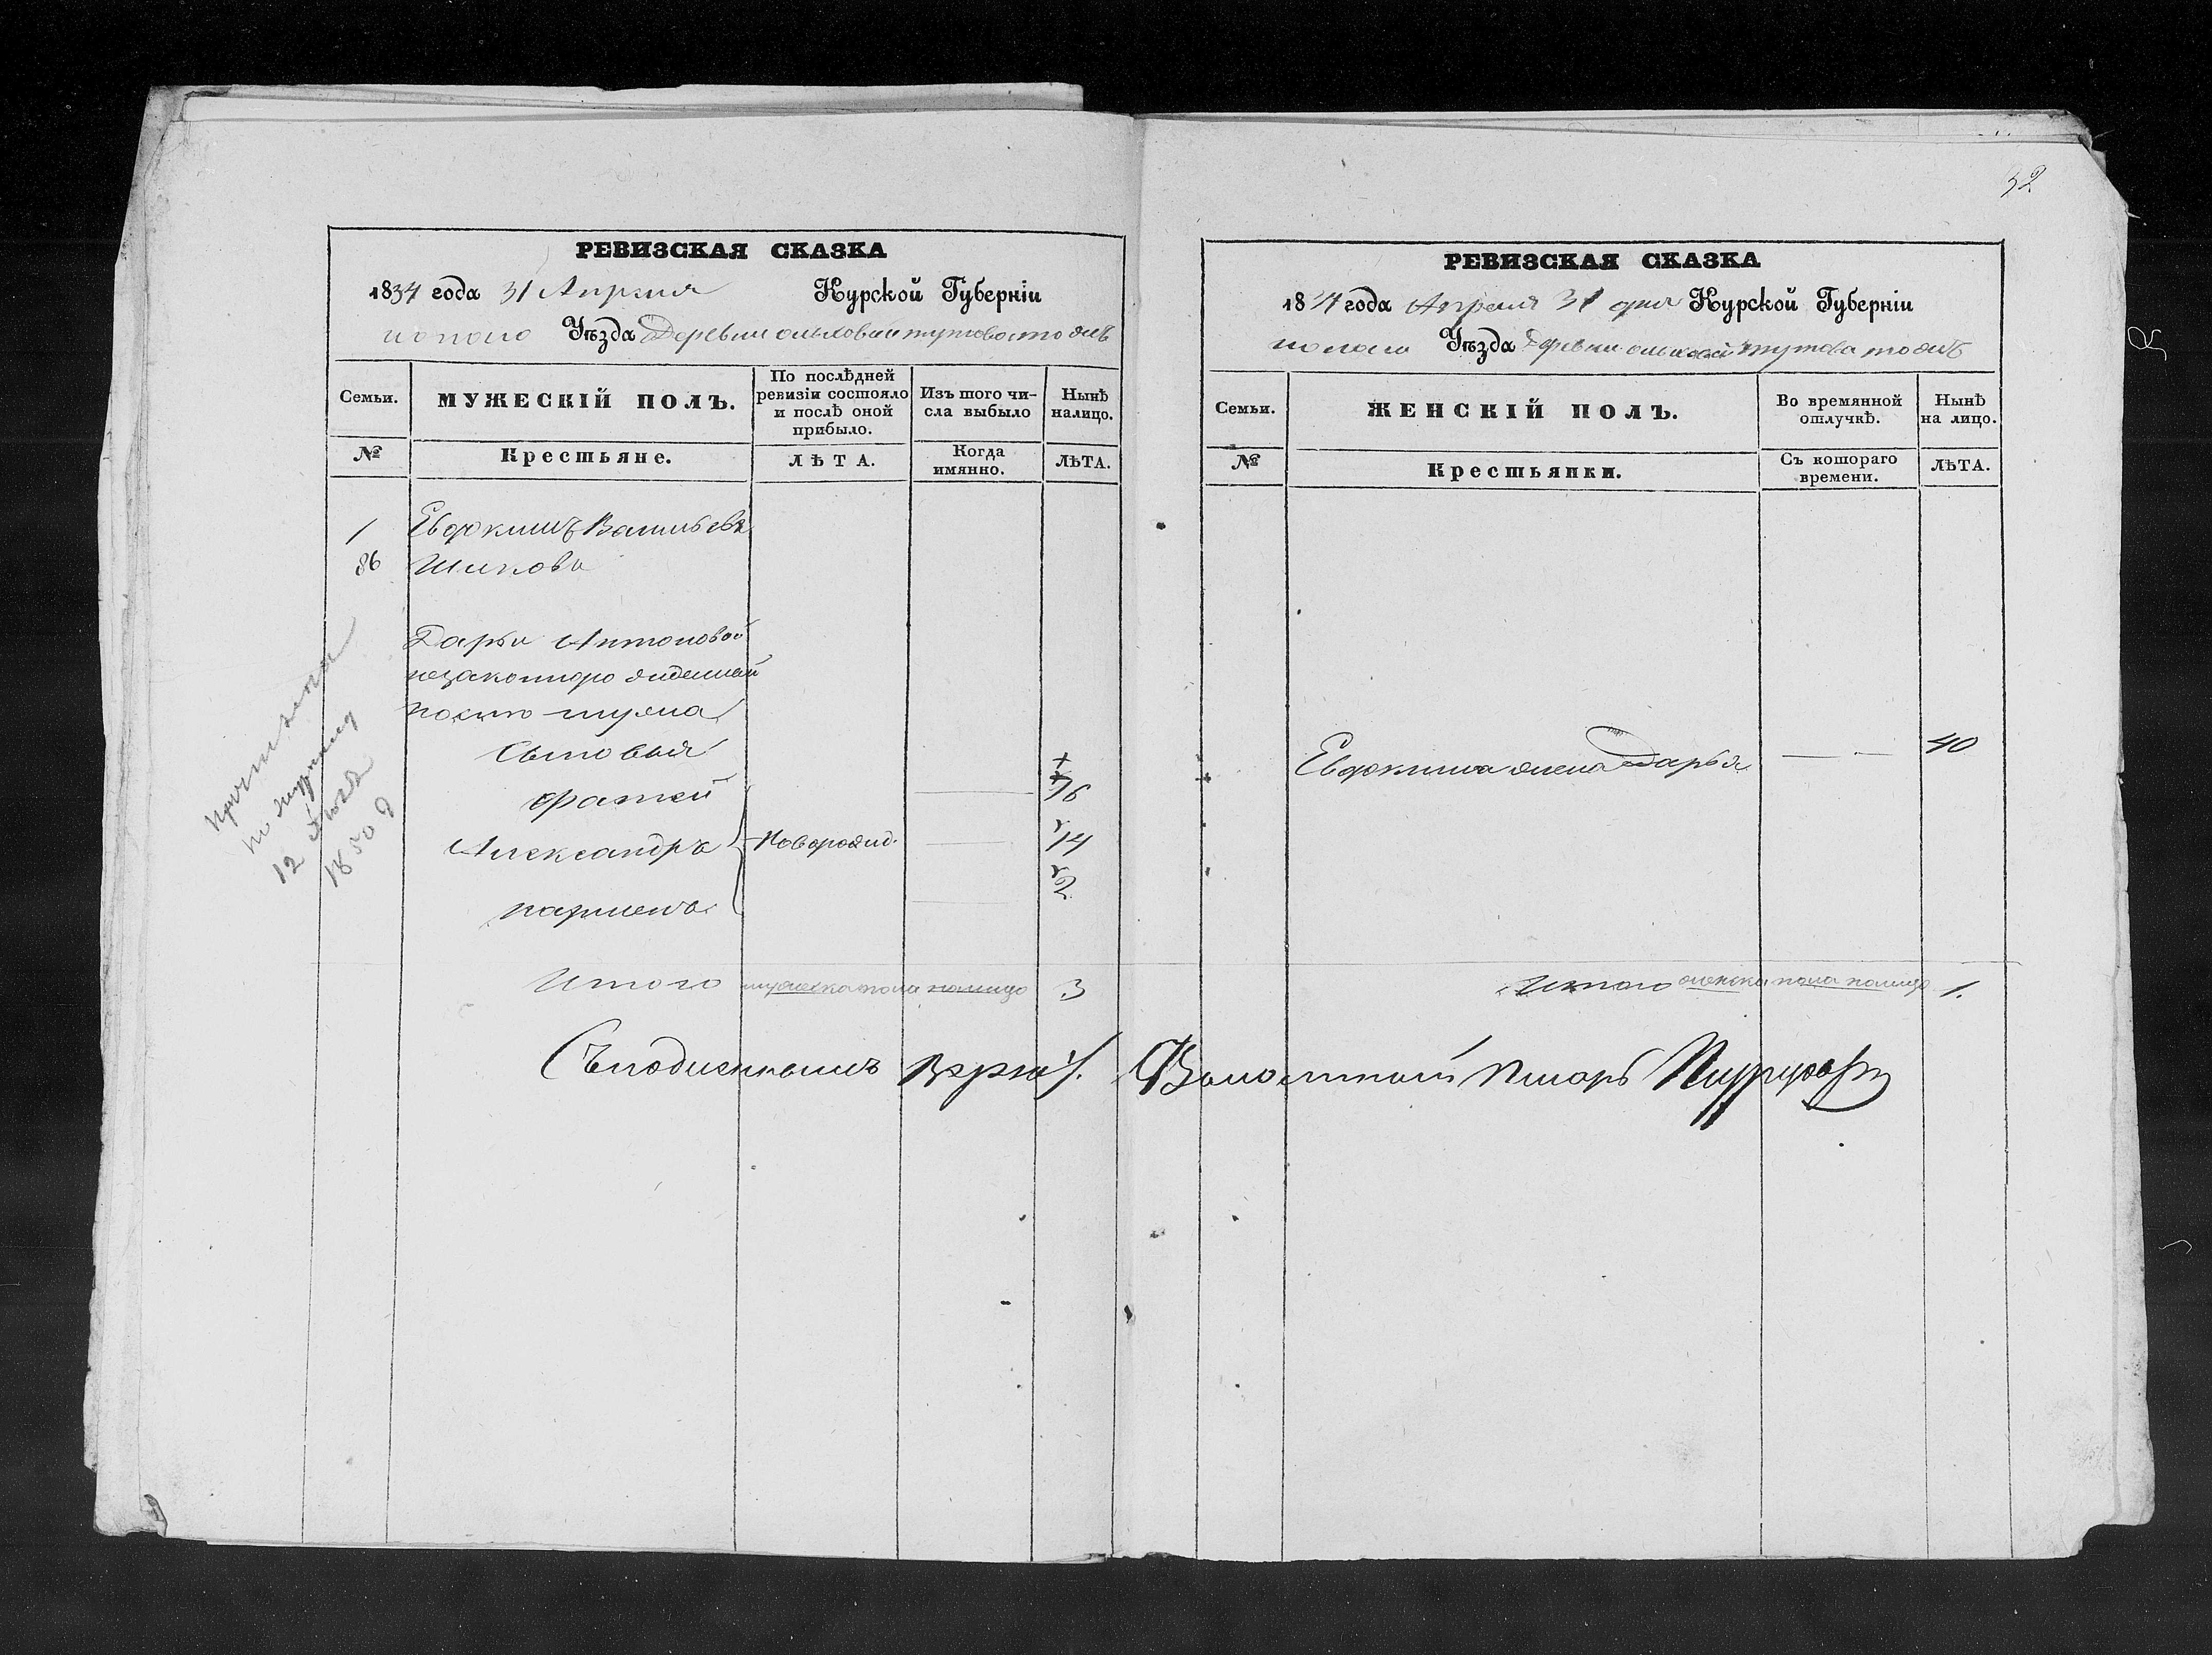 32
РЕВИЗСКАЯ СКАЗКА
1834 года 31 Апреля Курской Губерніи
Уѣзда Деревни ольховой тутова тожъ
Семьи.
МУЖЕСКІЙ ПОЛЪ.
По послѣдней ревизіи состояло и послѣ оной прибыло.
Изъ того числа выбыло
Нынѣ налицо.
№
Крестьяне.
ЛѢТА.
Когда имянно.
ЛѢТА.
1 Евдокимъ Васильевъ
86 Шиповъ
Дарьи Антоновой
незаконнорожденный
после мужа
Сыновья
Фатей 16
Александръ Новорожд. 14
парменъ 2
Итого мужеска пола налицо 3
Съ подлиннымъ верно:
12
1850
РЕВИЗСКАЯ СКАЗКА
1834 года Апреля 31 дня Курской Губерніи
Уѣзда Деревни ольховой тутова тожъ
Семьи.
ЖЕНСКІЙ ПОЛЪ.
Во времянной отлучкѣ.
Нынѣ на лицо.
№
Крестьянки.
Съ котораго времени.
ЛѢТА.
Евдокима жена Дарья 40
Итого женска пола налицо 1.
Волостной Писарь